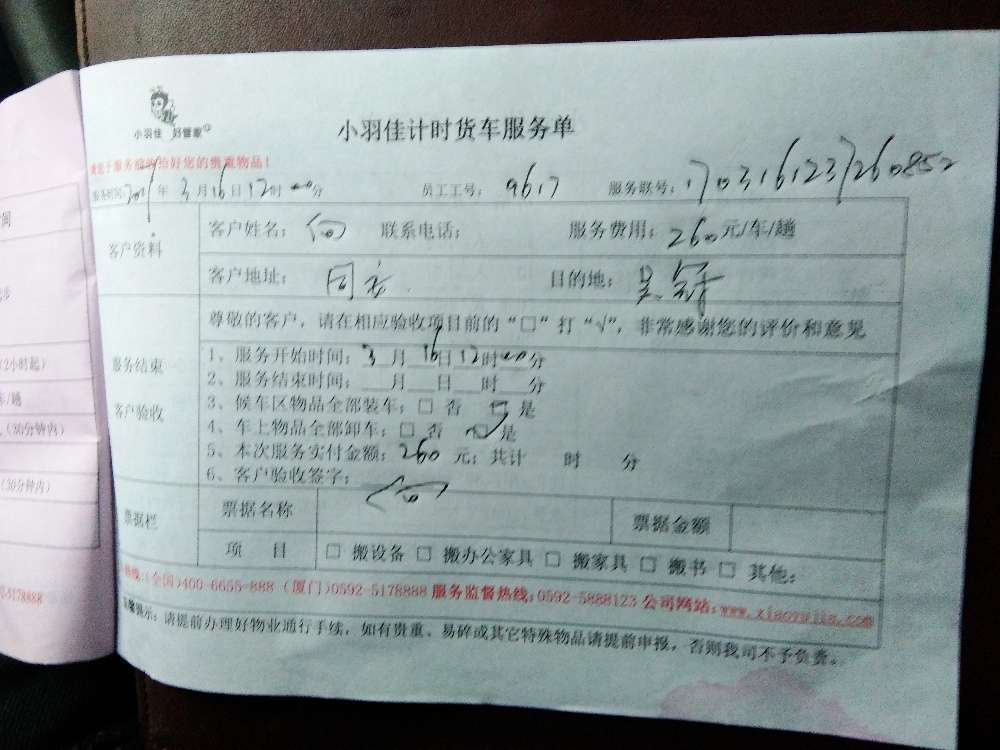 小羽佳 好管家
小羽佳计时货车服务单
服务时间: 年 3月16日12时00分 员工工号: 9617 服务联号: 1703161237260852
客户资料
客户姓名: 何 联系电话: 服务费用: 260元/车/趟
客户地址: 同 目的地: 吴
服务结束
客户验收
尊敬的客户,请在相应验收项目前的“□”打“√”,非常感谢您的评价和意见
1、服务开始时间: 3月16日12时00分
2、服务结束时间: 月 日 时 分
3、候车区物品全部装车: □ 否 □ 是
4、车上物品全部卸车: □ 否 □ 是
5、本次服务实付金额: 260 元; 共计 时 分
6、客户验收签字: 何
票据栏
票据名称 票据金额
项 目 □ 搬设备 □ 搬办公家具 □ 搬家具 □ 搬书 □ 其他:
热线:(全国)400-6655-888 (厦门)0592-5178888 服务监督热线:0592-5888123 公司网站:www.xiaoyujia.com
提示: 请提前办理好物业通行手续, 如有贵重、易碎或其它特殊物品请提前申报, 否则我司不予负责。
间
(2小时起)
/趟
(30分钟内)
(30分钟内)
-5178888